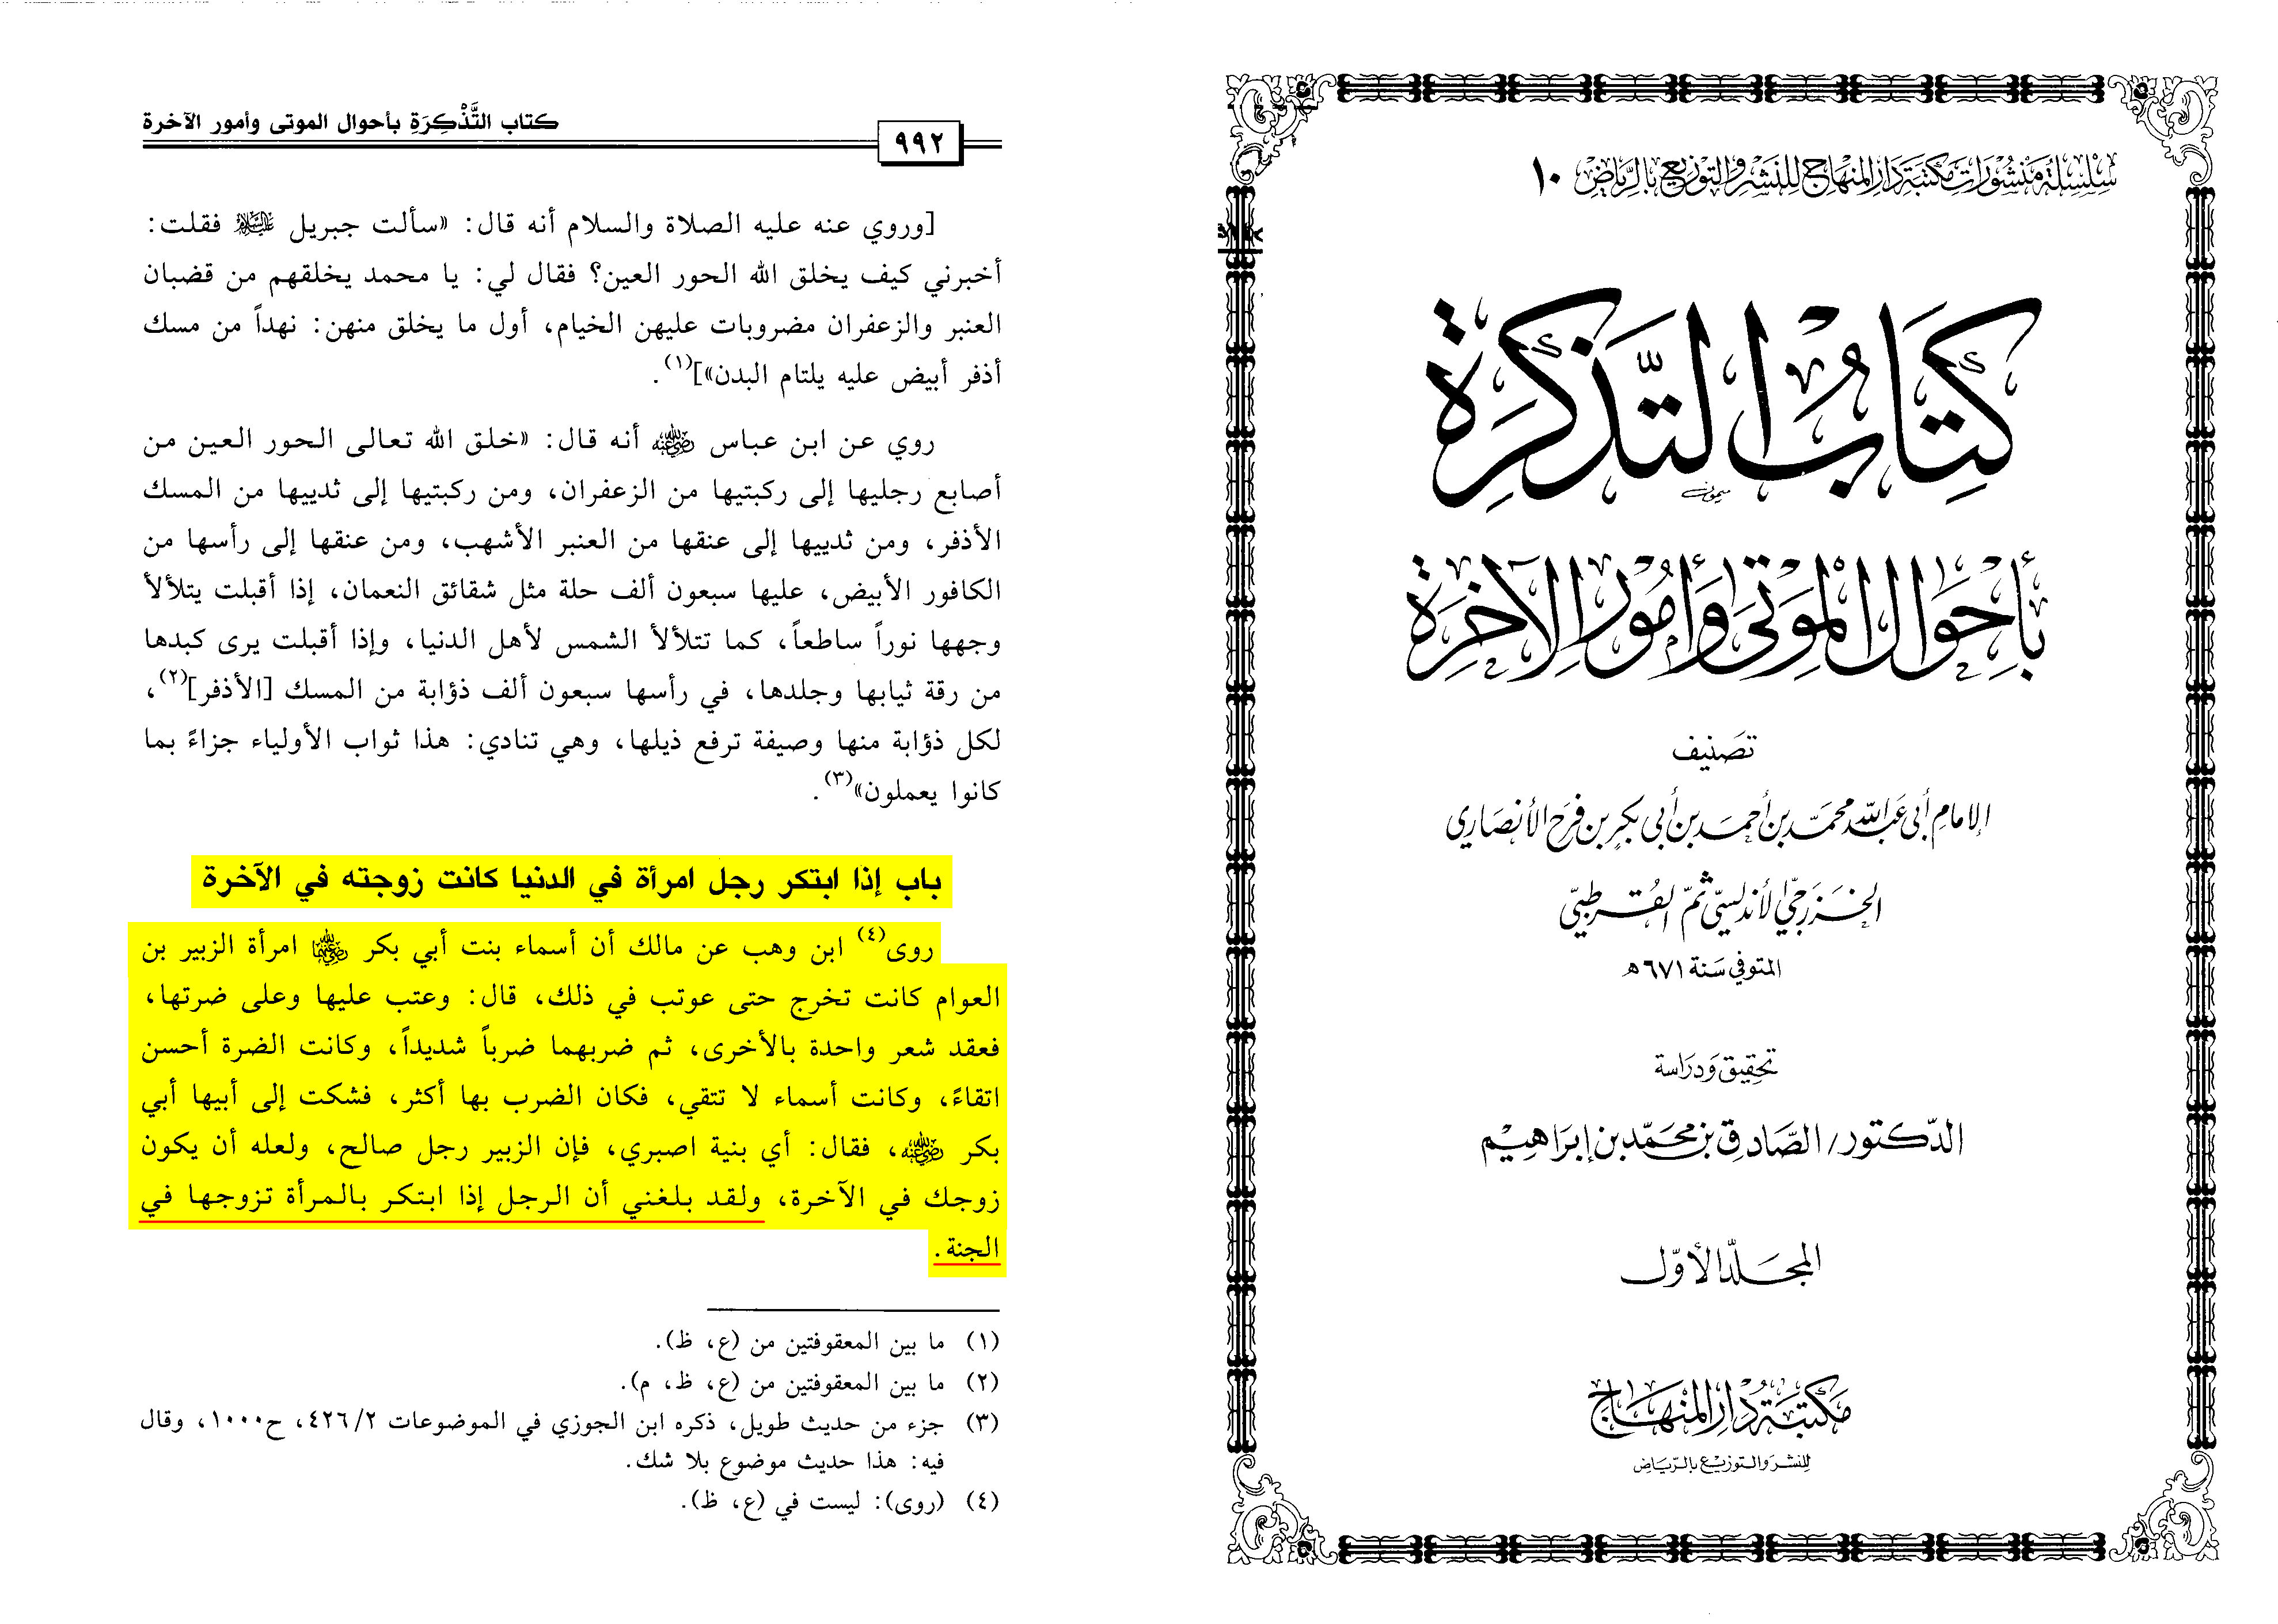 سلسلة منشورات مكتبة دار المنهاج للنشر والتوزيع بالرياض ١٠
كتاب التذكرة
بأحوال الموتى وأمور الآخرة
تصنيف
الإمام أبي عبد الله محمد بن أحمد بن أبي بكر بن فرح الأنصاري
الخزرجي الأندلسي ثم القرطبي
المتوفى سنة ٦٧١هـ
تحقيق ودراسة
الدكتور/ الصادق بن محمد بن إبراهيم
المجلد الأول
مكتبة دار المنهاج
للنشر والتوزيع بالرياض
كتاب التَّذْكِرَةِ بأحوال الموتى وأمور الآخرة
٩٩٢
[وروي عنه عليه الصلاة والسلام أنه قال: «سألت جبريل عليه السلام فقلت:
أخبرني كيف يخلق الله الحور العين؟ فقال لي: يا محمد يخلقهم من قضبان
العنبر والزعفران مضروبات عليهن الخيام، أول ما يخلق منهن: نهداً من مسك
أذفر أبيض عليه يلتام البدن»](١).
روي عن ابن عباس رضي الله عنه أنه قال: «خلق الله تعالى الحور العين من
أصابع رجليها إلى ركبتيها من الزعفران، ومن ركبتيها إلى ثدييها من المسك
الأذفر، ومن ثدييها إلى عنقها من العنبر الأشهب، ومن عنقها إلى رأسها من
الكافور الأبيض، عليها سبعون ألف حلة مثل شقائق النعمان، إذا أقبلت يتلألأ
وجهها نوراً ساطعاً، كما تتلألأ الشمس لأهل الدنيا، وإذا أقبلت يرى كبدها
من رقة ثيابها وجلدها، في رأسها سبعون ألف ذؤابة من المسك [الأذفر](٢)،
لكل ذؤابة منها وصيفة ترفع ذيلها، وهي تنادي: هذا ثواب الأولياء جزاءً بما
كانوا يعملون»(٣).
باب إذا ابتكر رجل امرأة في الدنيا كانت زوجته في الآخرة
روى(٤) ابن وهب عن مالك أن أسماء بنت أبي بكر رضي الله عنهما امرأة الزبير بن
العوام كانت تخرج حتى عوتب في ذلك، قال: وعتب عليها وعلى ضرتها،
فعقد شعر واحدة بالأخرى، ثم ضربهما ضرباً شديداً، وكانت الضرة أحسن
اتقاءً، وكانت أسماء لا تتقي، فكان الضرب بها أكثر، فشكت إلى أبيها أبي
بكر رضي الله عنه، فقال: أي بنية اصبري، فإن الزبير رجل صالح، ولعله أن يكون
زوجك في الآخرة، ولقد بلغني أن الرجل إذا ابتكر بالمرأة تزوجها في
الجنة.
(١) ما بين المعقوفتين من (ع، ظ).
(٢) ما بين المعقوفتين من (ع، ظ، م).
(٣) جزء من حديث طويل، ذكره ابن الجوزي في الموضوعات ٤٢٦/٢، ح١٠٠٠، وقال
فيه: هذا حديث موضوع بلا شك.
(٤) (روى): ليست في (ع، ظ).